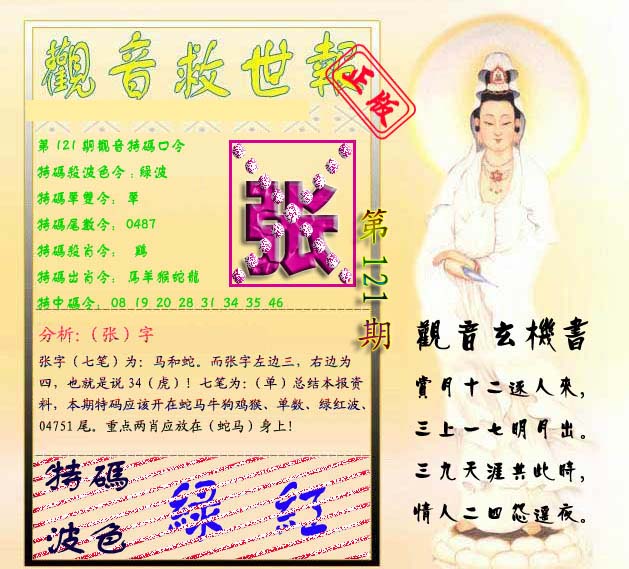 觀音救世報
正版
第121期觀音特碼口令
特碼殺波色令:綠波
特碼單雙令: 單
特碼尾數令: 0487
特碼殺肖令: 鷄
特碼出肖令: 馬羊猴蛇龍
特中碼令: 08 19 20 28 31 34 35 46
张
第121期
分析:(张)字
张字(七笔)为:马和蛇。而张字左边三,右边为
四,也就是说34(虎)!七笔为:(单)总结本报资
料,本期特码应该开在蛇马牛狗鸡猴、单数、绿红波、
04751尾。重点两肖应放在(蛇马)身上!
特碼
波色
綠 紅
觀音玄機書
賞月十二逐人來,
三上一七明月出。
三九天涯共此時,
情人二四怨遥夜。